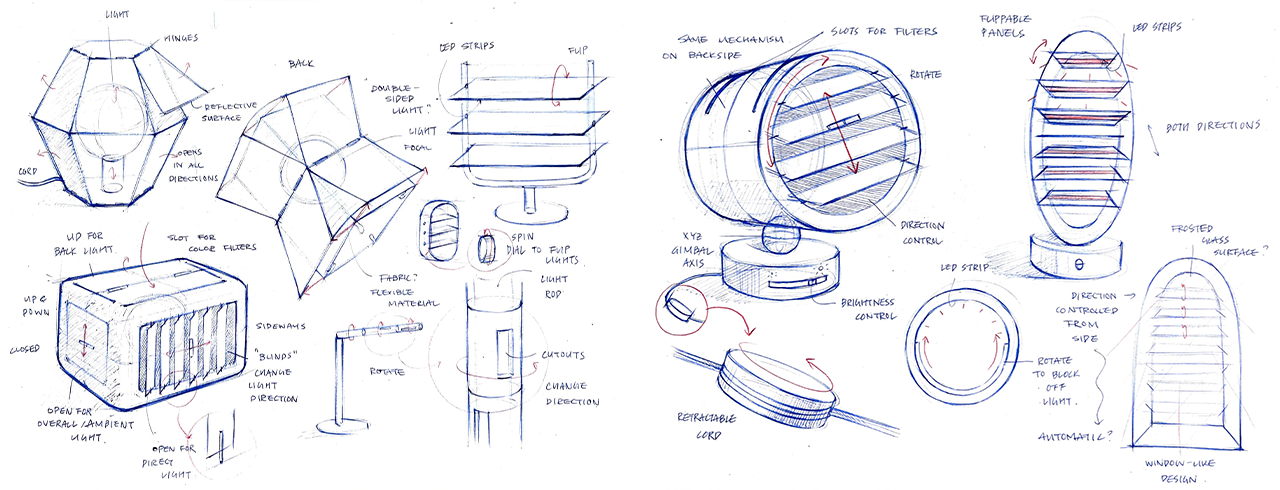 LIGHT
HINGES
REFLECTIVE
SURFACE
OPENS
IN ALL
DIRECTIONS
CORD
BACK
FABRIC?
FLEXIBLE
MATERIAL
LED STRIPS
FLIP
DOUBLE-
SIDED
LIGHT?
LIGHT
FOCAL
SPIN
DIAL TO FLIP
LIGHTS
UP FOR
BACK LIGHT
SLOT FOR
COLOR FILTERS
UP &
DOWN
CLOSED
SIDEWAYS
"BLINDS"
CHANGE
LIGHT
DIRECTION
OPEN FOR
OVERALL/AMBIENT
LIGHT.
OPEN FOR
DIRECT
LIGHT
ROTATE
LIGHT
ROD
CUTOUTS
CHANGE
DIRECTION
SAME MECHANISM
ON BACKSIDE
SLOTS FOR FILTERS
ROTATE
DIRECTION
CONTROL
XYZ
GIMBAL
AXIS
BRIGHTNESS
CONTROL
RETRACTABLE
CORD
FLIPPABLE
PANELS
LED STRIPS
BOTH DIRECTIONS
LED STRIP
ROTATE
TO BLOCK
OFF
LIGHT.
FROSTED
GLASS
SURFACE?
DIRECTION
CONTROLLED
FROM
SIDE
AUTOMATIC?
WINDOW-LIKE
DESIGN.